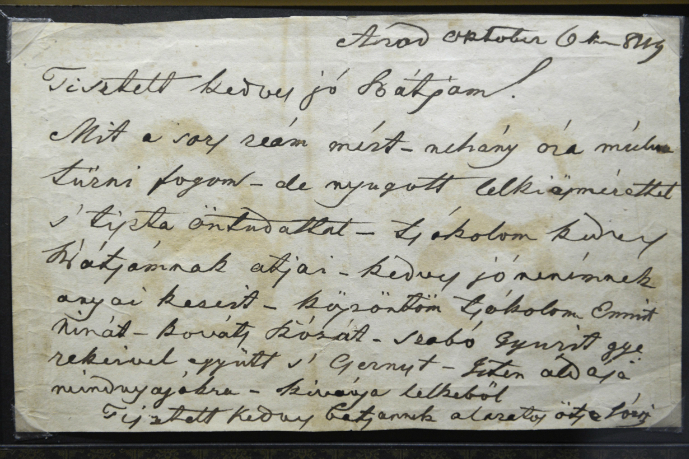 Arad október 6kn 849
Tisztelt kedves jó Bátjam!
Mit a sors reám mért – nehány óra múlva
tűrni fogom – de nyugott lelkiösmérettel
s' tiszta öntudattal – Tsókolom kedves
Bátjámnak atjai – kedves jó nenémnek
anyai keseit – köszöntöm tsókolom Emmit
Ninát – Kováts Rózát – Szabó Gyurit gye
rekeivel együtt s' Gernyt – Isten áldasa
mindnyajókra – kivánja lelkeből
Tisztelt kedves batjannek alazatos ötse